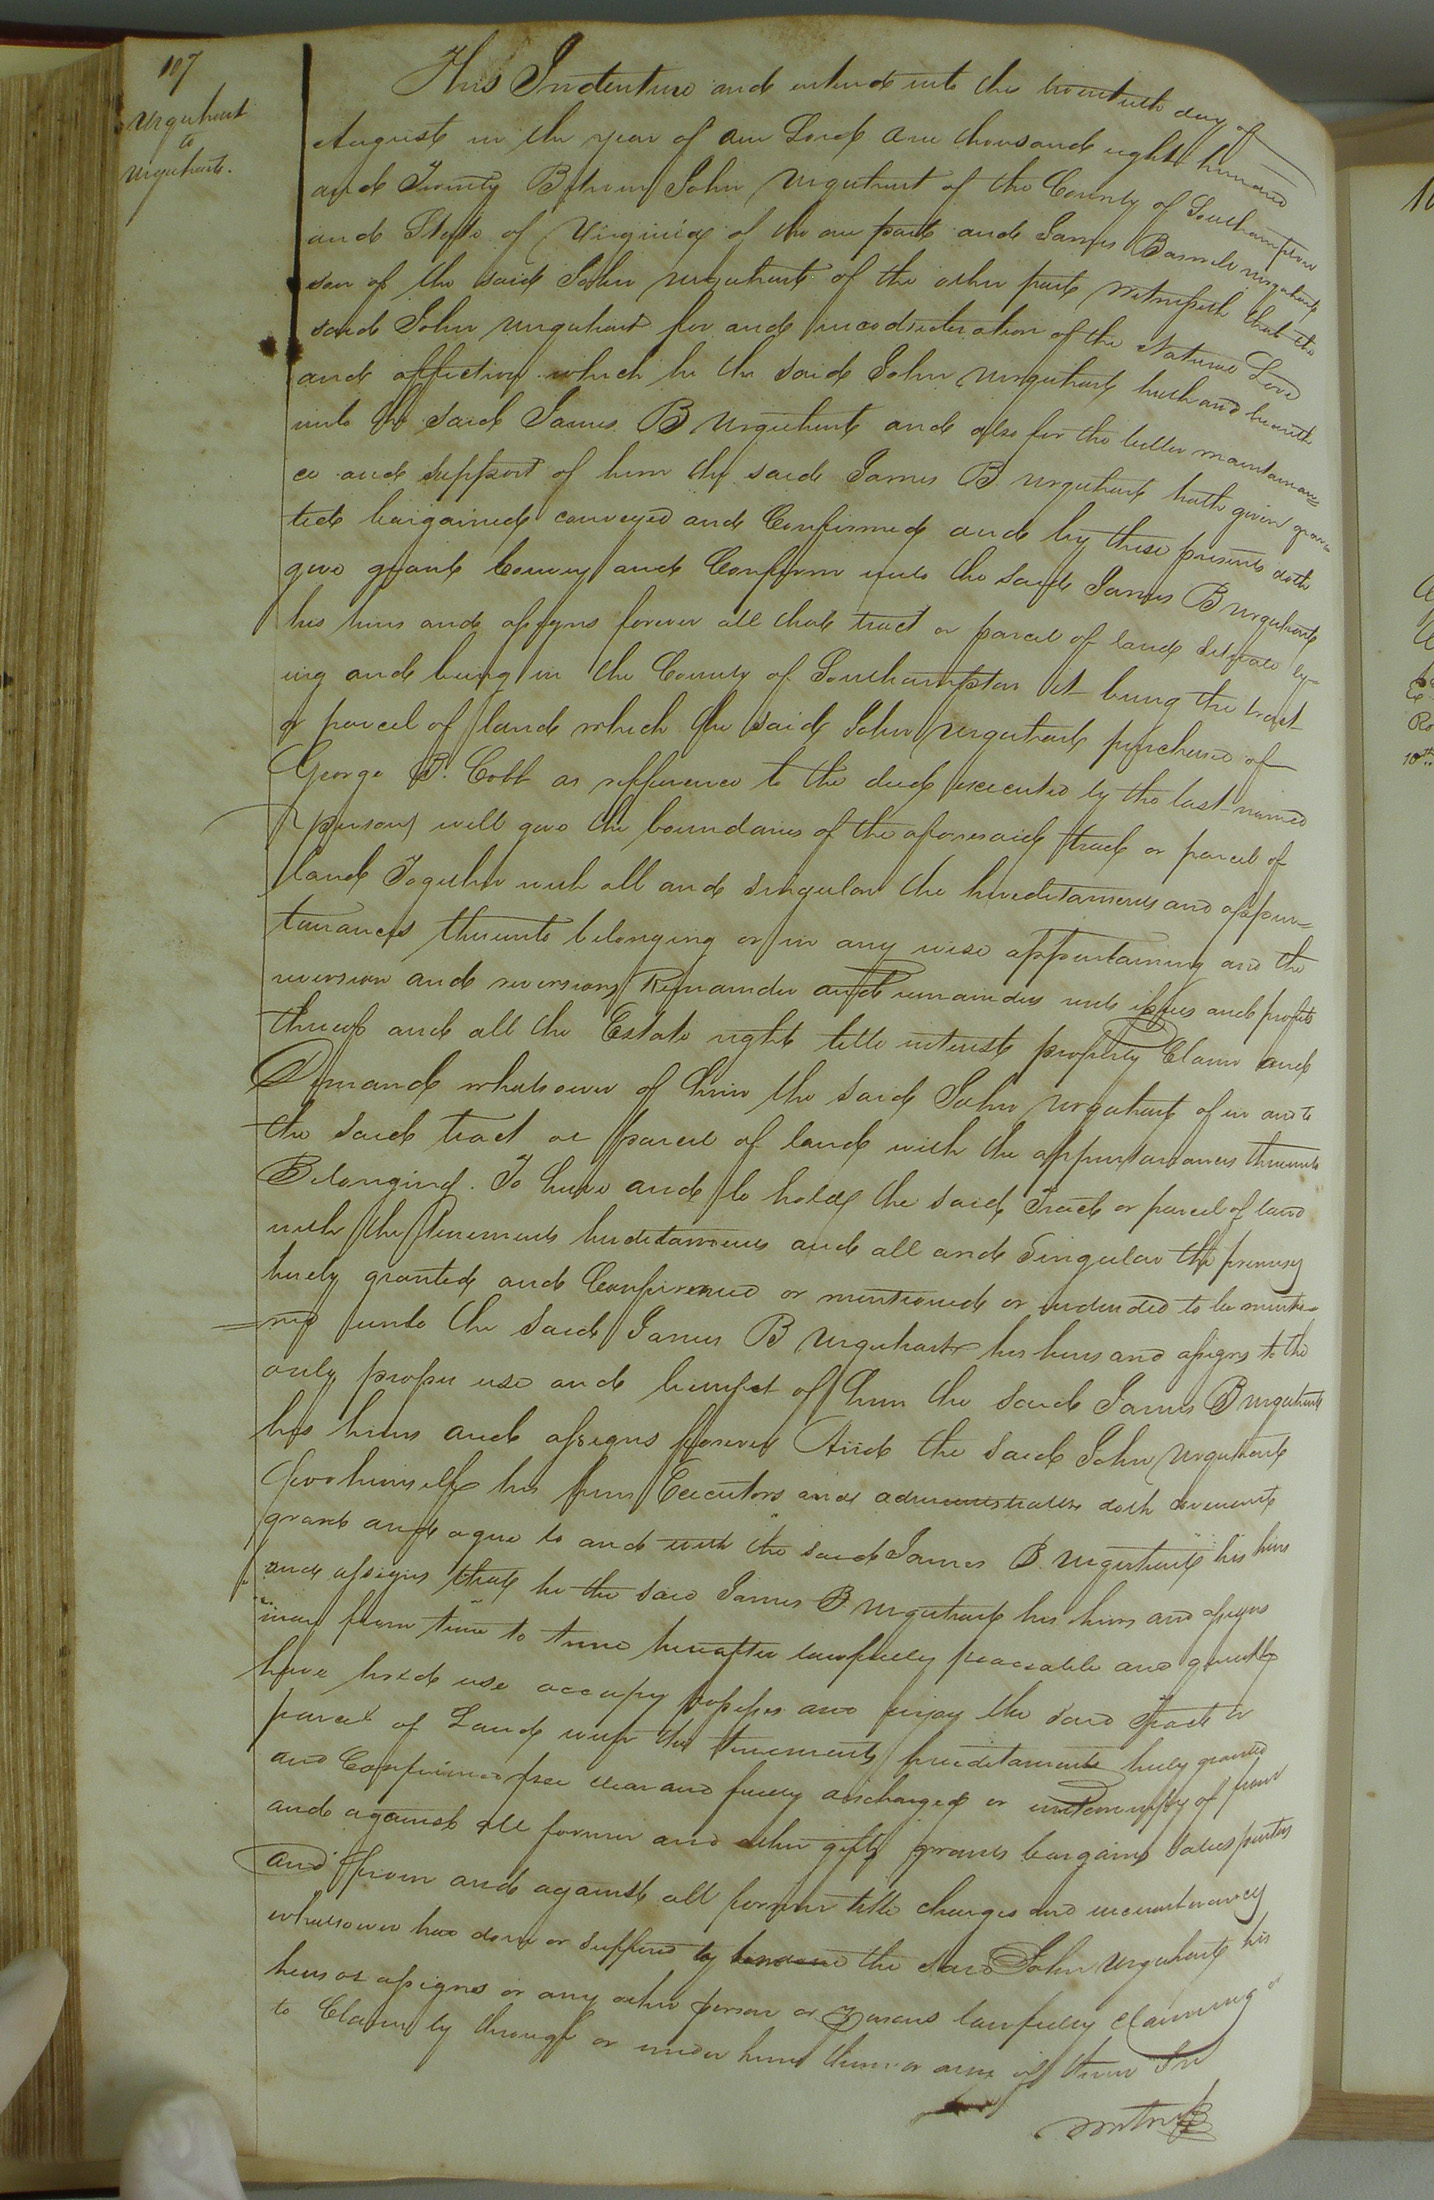 107
Urquhart
to
Urquhart.
This Indenture made entered into this twentieth day of
August in the year of our Lord one thousand eight hundred
and Twenty Between John Urquhart of the County of Southampton
and State of Virginia of the one part and James Barnile Urquhart
son of the said John Urquhart of the other part witnesseth that the
said John Urquhart for and inconsideration of the Natural Love
and affection which he the said John Urquhart hath and beareth
unto the said James B Urquhart and also for the better maintainan=
ce and support of him the said James B. Urquhart hath given gran=
ted bargained conveyed and Confirmed and by these presents doth
give grant Convey and Confirm unto the said James B Urquhart
his heirs and assigns forever all that tract or parcel of land situate ly=
ing and being in the County of Southampton it being the tract
or parcel of land which the said John Urquhart purchased of
George B. Cobb as refference to the deed executed by the last named
person will give the boundaries of the aforesaid tract or parcel of
land Together with all and singular the hereditaments and appur=
tenances thereunto belonging or in any wise appertaining and the
reversion and reversions Remainder and remainders rents issues and profits
thereof and all the Estate right title interest property Claim and
Demand whatsoever of him the said John Urquhart of in and to
the said tract or parcel of land with the appurtanances thereunto
Belonging. To have and to hold the said Tract or parcel of land
with the tenements hereditaments and all and Singular the premises
herely granted and Confirmed or mentioned or intended to be mentio=
ned unto the said James B Urquhart his heirs and assigns to the
only proper use and benefit of him the said James B Urquhart
his heirs and assigns forever And the said John Urquhart
for himself his heirs Executors and administrators doth covenant
grant and agree to and with the said James B. Urquhart his heirs
and assigns that he the said James B Urquhart his heirs and assigns
may from time to time hereafter lawfully peaceable and quietly
have hold use occupy possess and enjoy the said Tract or
parcel of Land with the tenements hereditaments herely granted
and Confirmed free clear and fully discharged or of from
and against all former and other gifts grants bargains sales
and from and against all former title charges and incumbrances
whatsoever had done or suffered by the said John Urquhart his
heirs or assigns or any other person or persons lawfully claiming or
to Claim by through or under him them or any of them In
witness